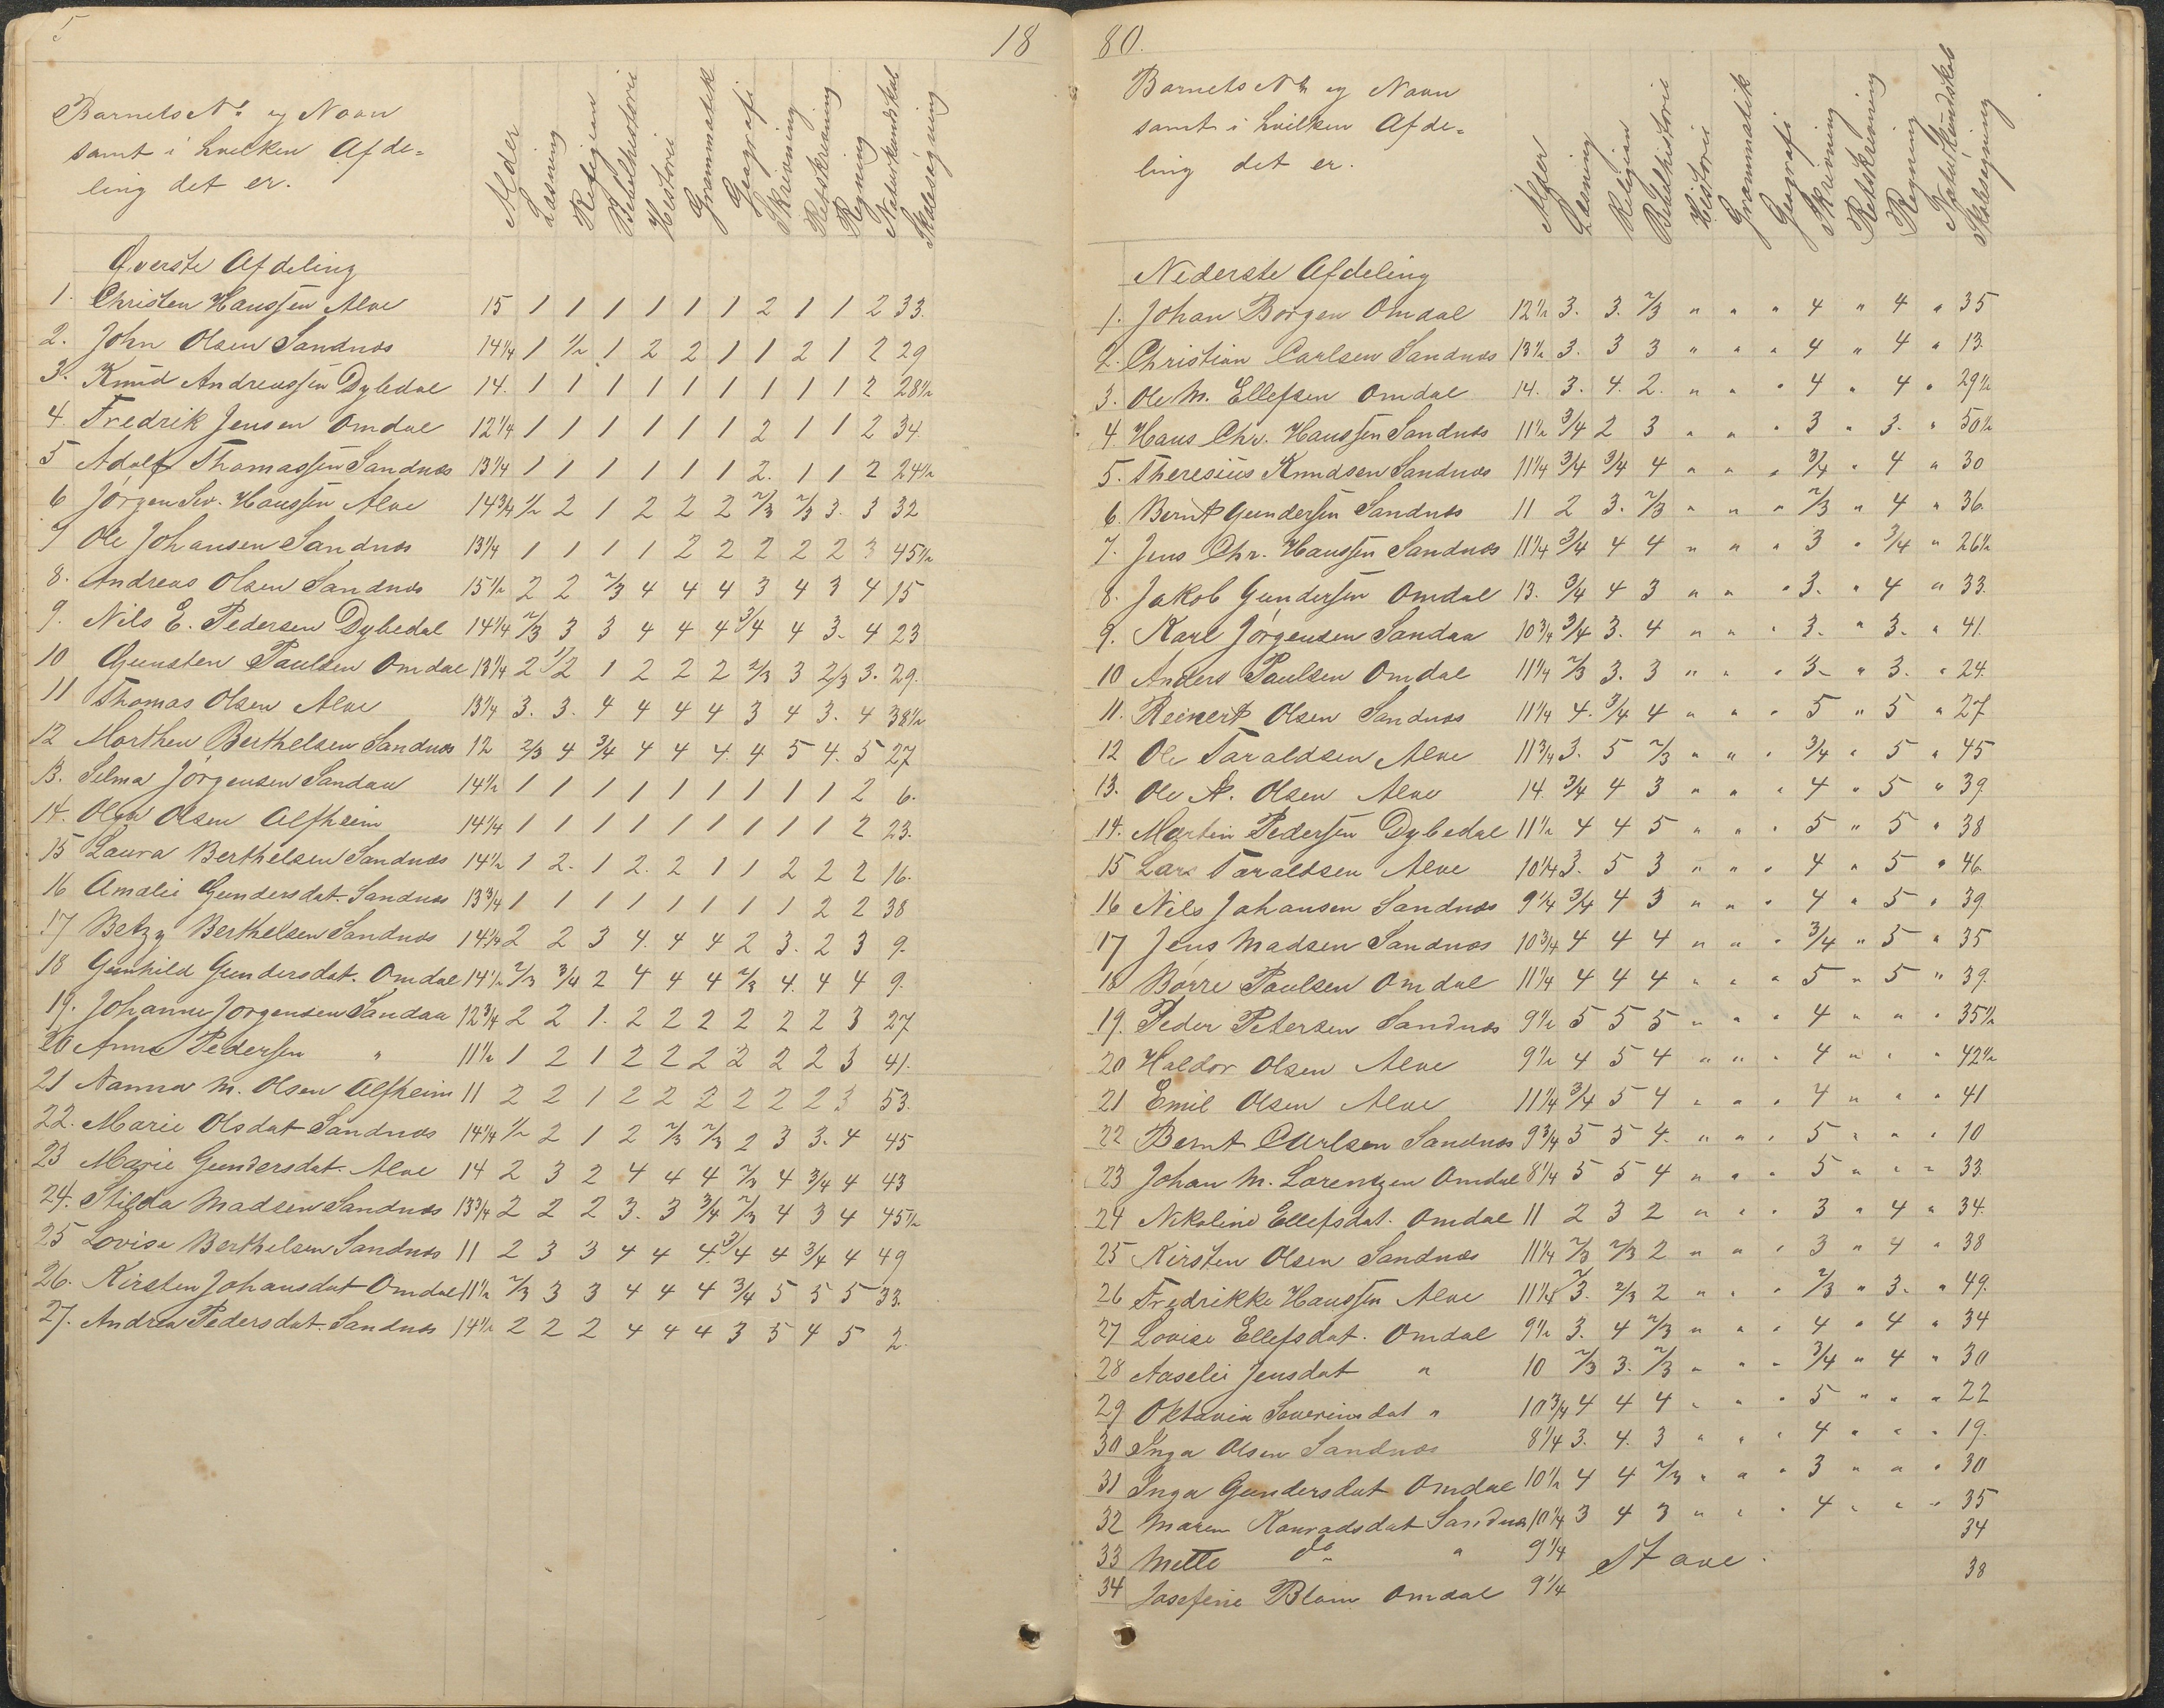 5
18
Barnets No og Navn
samt i hvilken Afde-
ling det er.
Alder Læsning Religion Bibelhistorie Historie Grammatik Geografi Skrivning Retskrivning Regning Naturkundskab Skolesøgning
Øverste Afdeling
1. Christen Hanssen Alve 15 1 1 1 1 1 1 2 1 1 2 33.
2. John Olsen Sandnæs 14 1/4 1 1/2 1 2 2 1 1 2 1 2 29
3. Knud Andreassen Dybedal 14. 1 1 1 1 1 1 1 1 1 2 28 1/2
4. Fredrik Jensen Omdal 12 1/4 1 1 1 1 1 1 2 1 1 2 34.
5 Adolf Thomassen Sandnæs 13 1/4 1 1 1 1 1 1 2. 1 1 2 24 1/2
6 Jørgen Sev. Hanssen Alve 14 3/4 1/2 2 1 2 2 2 2/3 2/3 3. 3 32
7 Ole Johansen Sandnæs 13 1/4 1 1 1 1 2 2 2 2 2 3 45 1/2
8. Andreas Olsen Sandnæs 15 1/2 2 2 2/3 4 4 4 3 4 3 4 15
9. Nils E. Pedersen Dybedal 14 1/4 2/3 3 3 4 4 4 3/4 4 3. 4 23
10 Gunsten Paulsen Omdal 13 1/4 2 1/2 1 2 2 2 2/3 3 2/3 3. 29.
11 Thomas Olsen Alve 13 1/4 3. 3. 4 4 4 4 3 4 3. 4 38 1/2
12 Morthen Berthelsen Sandnæs 12 2/3 4 3/4 4 4 4. 4 5 4. 5 27
13. Selma Jørgensen Sandaa 14 1/2 1 1 1 1 1 1 1 1 1 2 6.
14. Olga Olsen Alfheim 14 1/4 1 1 1 1 1 1 1 1 1 2 23.
15 Laura Berthelsen Sandnæs 14 1/2 1 2. 1 2. 2 1 1 2 2 2 16.
16 Amalie Gundersdat. Sandnæs 13 3/4 1 1 1 1 1 1 1 1 2 2 38
17 Betzy Berthelsen Sandnæs 14 1/4 2 2 3 4. 4 4 2 3. 2 3 9.
18 Gunhild Gundersdat. Omdal 14 1/2 2/3 3/4 2 4 4 4 2/3 4. 4 4 9.
19. Johanne Jørgensen Sandaa 12 3/4 2 2 1. 2 2 2 2 2 2 3 27
20 Anna Pedersen " 11 1/2 1 2 1 2 2 2 2 2 2 3 41.
21 Nanna M. Olsen Alfheim 11 2 2 1 2 2 2 2 2 2 3 53.
22. Marie Olsdat Sandnæs 14 1/4 1/2 2 1 2 2/3 2/3 2 3 3. 4 45
23 Marie Gundersdat. Alve 14 2 3 2 4 4 4 2/3 4 3/4 4 43
24. Hilda Madsen Sandnæs 13 3/4 2 2 2 3. 3 3/4 2/3 4 3 4 45 1/2
25 Lovise Berthelsen Sandnæs 11 2 3 3 4 4 4. 3/4 4 3/4 4 49
26. Kirsten Johansdat Omdal 11 1/2 2/3 3 3 4 4 4 3/4 5 5 5 33.
27. Andrea Pedersdat. Sandnæs 14 1/2 2 2 2 4 4 4 3 5 4 5 2.
80.
Barnets No og Navn
samt i hvilken Afde-
ling det er.
Alder Læsning Religion Bibelhistorie Historie Grammatik Geografi Skrivning Retskrivning Regning Naturkundskab Skolesøgning
Nederste Afdeling
1. Johan Børgen Omdal 12 1/2 3. 3. 2/3 " " " 4 " 4 " 35
2. Christian Carlsen Sandnæs 13 1/2 3. 3 3 " " " 4 " 4 " 13.
3. Ole M. Ellefsen Omdal 14. 3. 4. 2. " " " 4 " 4 " 29 1/2
4. Hans Chr. Hanssen Sandnæs 11 1/2 3/4 2 3 " " " 3 " 3. " 50 1/2
5. Theresius Knudsen Sandnæs 11 1/4 3/4 3/4 4 " " " 3/4 " 4 " 30
6. Bernt Gundersen Sandnæs 11 2 3. 2/3 " " " 2/3 " 4 " 36.
7. Jens Chr. Hanssen Sandnæs 11 1/4 3/4 4 4 " " " 3 " 3/4 " 26 1/2
8. Jakob Gundersen Omdal 13. 3/4 4 3 " " " 3. " 4 " 33.
9. Karl Jørgensen Sandaa 10 3/4 3/4 3. 4 " " " 3. " 3. " 41.
10 Anders Paulsen Omdal 11 1/4 2/3 3. 3 " " " 3. " 3. " 24.
11. Reinert Olsen Sandnæs 11 1/4 4. 3/4 4 " " " 5 " 5 " 27
12 Ole Taraldsen Alve 11 3/4 3. 5 2/3 " " " 3/4 " 5 " 45
13. Ole A. Olsen Alve 14. 3/4 4 3 " " " 4 " 5 " 39
14. Martin Pedersen Dybedal 11 1/2 4 4 5 " " " 5 " 5 " 38
15 Lars Taraldsen Alve 10 1/4 3. 5 3 " " " 4 " 5 " 46.
16 Nils Johansen Sandnæs 9 1/4 3/4 4 3 " " " 4 " 5 " 39.
17 Jens Madsen Sandnæs 10 3/4 4 4 4 " " " 3/4 " 5 " 35
18 Børre Paulsen Omdal 11 1/4 4 4 4 " " " 5 " 5 " 39.
19. Peder Petersen Sandnæs 9 1/2 5 5 5 " " " 4 " " " 35 1/2
20 Haldor Olsen Alve 9 1/2 4 5 4 " " " 4 " " " 42 1/2
21 Emil Olsen Alve 11 1/4 3/4 5 4 " " " 4 " " " 41
22 Bernt Carlsen Sandnæs 9 3/4 5 5 4. " " " 5 " " " 10
23 Johan M. Lorentzen Omdal 8 1/4 5 5 4 " " " 5 " " " 33.
24 Nikoline Ellefsdat. Omdal 11 2 3 2 " " " 3 " 4 " 34.
25 Kirsten Olsen Sandnæs 11 1/4 2/3 2/3 2 " " " 3 " 4 " 38
26 Fredrikke Hanssen Alve 11 1/4 2/3. 2/3 2 " " " 2/3 " 3. " 49.
27 Lovise Ellefsdat. Omdal 9 1/2 3. 4 2/3 " " " 4 " 4 " 34
28 Aaselie Jensdat " 10 2/3 3. 2/3 " " " 3/4 " 4 " 30
29 Oktavia Severinsdat " 10 3/4 4 4 4 " " " 5 " " " 22
30 Inga Olsen Sandnæs 8 1/4 3. 4. 3 " " " 4 " " " 19.
31 Inga Gundersdat Omdal 10 1/2 4 4 2/3 " " " 3 " " " 30
32 Maren Konradsdat Sandnæs 10 1/4 3 4 3 " " " 4 " " " 35
33 Mette do " 9 1/4 Stave. 34
34 Josefine Blom Omdal 9 1/4 38